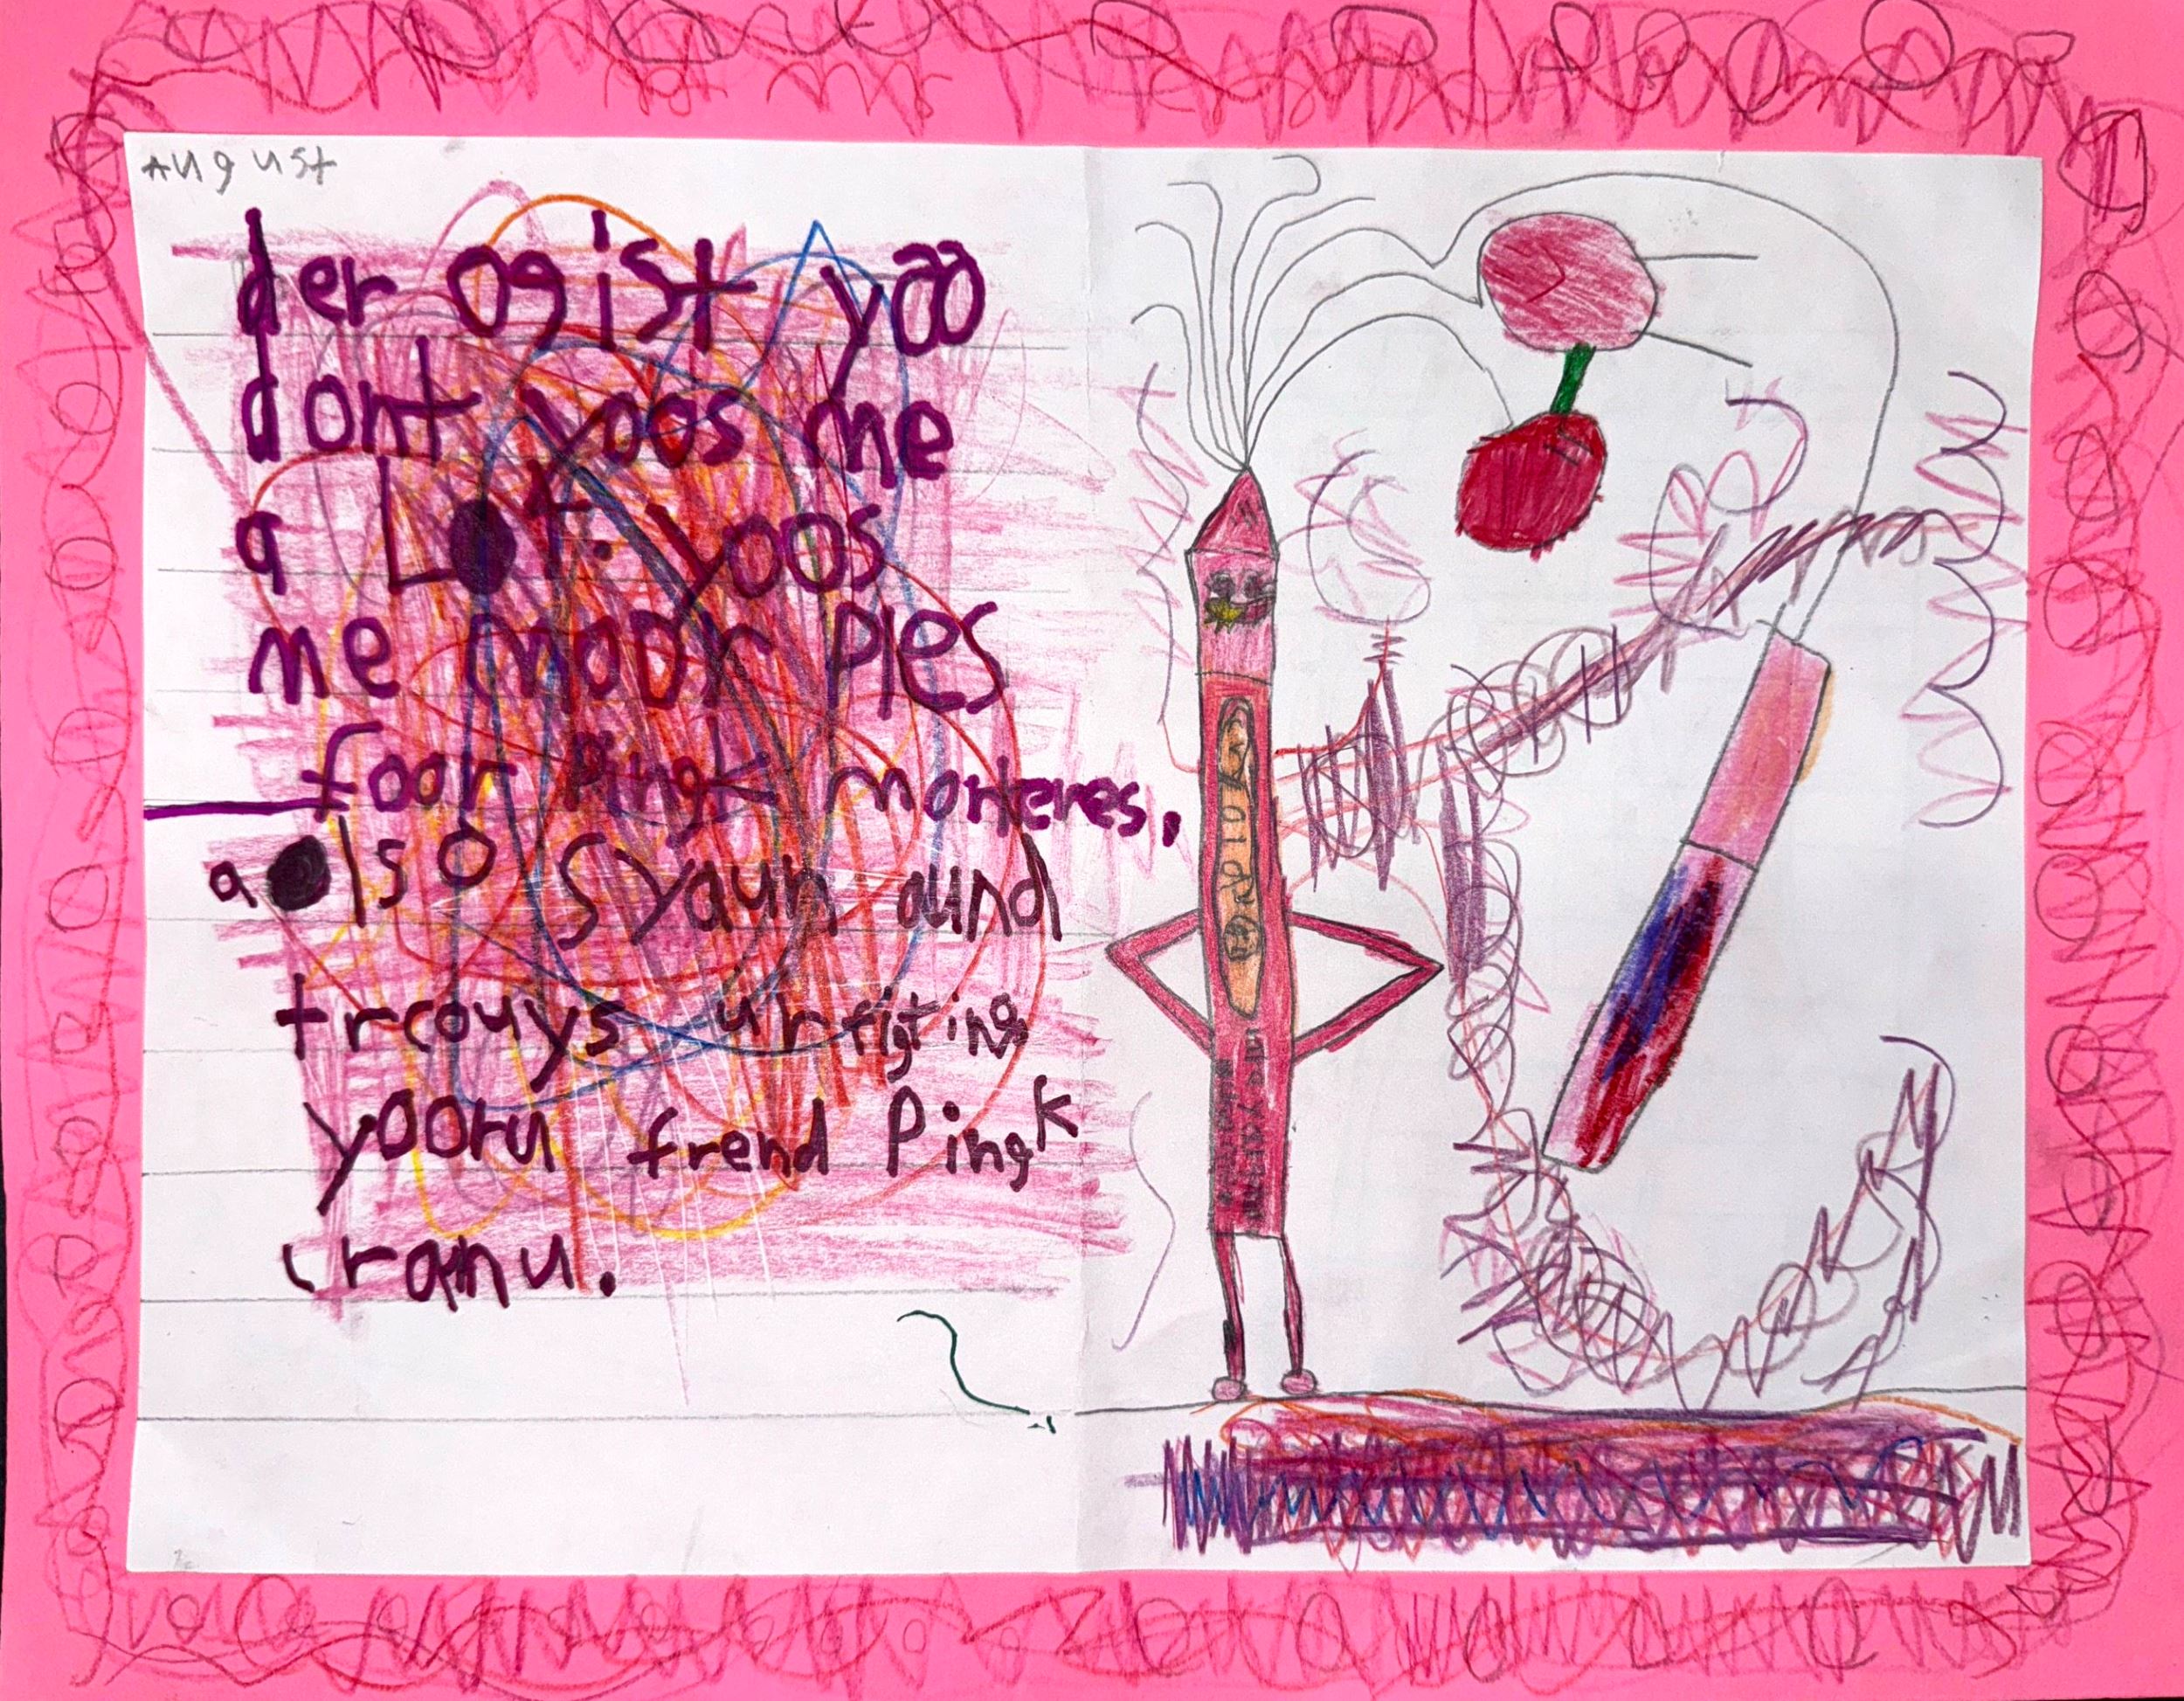 August
der ogist yoo
dont yoos me
a Lot. yoos
me moor Ples
foor Pingk monteres,
also Syaun aund
trcouys ur figting
yooru frend Pingk
cranu.